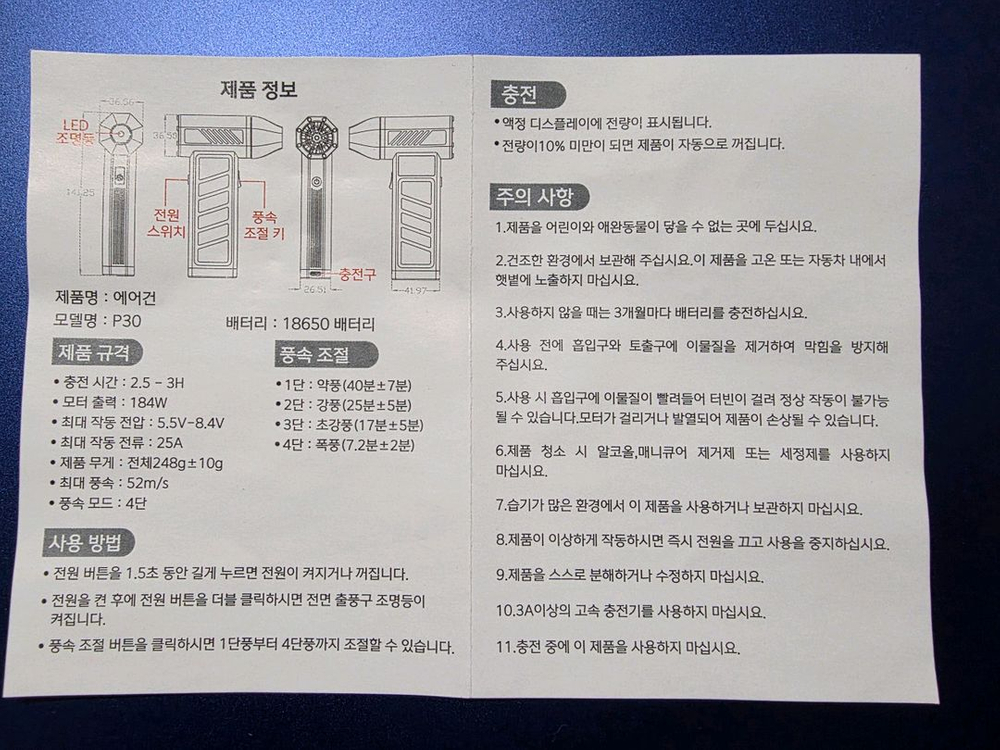 제품 정보
36.56
LED
조명등
36.55
전원
스위치
풍속
조절 키
충전구
26.51
41.97
제품명 : 에어건
모델명 : P30
배터리 : 18650 배터리
제품 규격
• 충전 시간 : 2.5 - 3H
• 모터 출력 : 184W
• 최대 작동 전압 : 5.5V-8.4V
• 최대 작동 전류 : 25A
• 제품 무게 : 전체248g±10g
• 최대 풍속 : 52m/s
• 풍속 모드 : 4단
풍속 조절
• 1단 : 약풍(40분±7분)
• 2단 : 강풍(25분±5분)
• 3단 : 초강풍(17분±5분)
• 4단 : 폭풍(7.2분±2분)
사용 방법
• 전원 버튼을 1.5초 동안 길게 누르면 전원이 켜지거나 꺼집니다.
• 전원을 켠 후에 전원 버튼을 더블 클릭하시면 전면 출풍구 조명등이
켜집니다.
• 풍속 조절 버튼을 클릭하시면 1단풍부터 4단풍까지 조절할 수 있습니다.
충전
• 액정 디스플레이에 전량이 표시됩니다.
• 전량이10% 미만이 되면 제품이 자동으로 꺼집니다.
주의 사항
1.제품을 어린이와 애완동물이 닿을 수 없는 곳에 두십시요.
2.건조한 환경에서 보관해 주십시요.이 제품을 고온 또는 자동차 내에서
햇볕에 노출하지 마십시요.
3.사용하지 않을 때는 3개월마다 배터리를 충전하십시요.
4.사용 전에 흡입구와 토출구에 이물질을 제거하여 막힘을 방지해
주십시요.
5.사용 시 흡입구에 이물질이 빨려들어 터빈이 걸려 정상 작동이 불가능
될 수 있습니다.모터가 걸리거나 발열되어 제품이 손상될 수 있습니다.
6.제품 청소 시 알코올,매니큐어 제거제 또는 세정제를 사용하지
마십시요.
7.습기가 많은 환경에서 이 제품을 사용하거나 보관하지 마십시요.
8.제품이 이상하게 작동하시면 즉시 전원을 끄고 사용을 중지하십시요.
9.제품을 스스로 분해하거나 수정하지 마십시요.
10.3A이상의 고속 충전기를 사용하지 마십시요.
11.충전 중에 이 제품을 사용하지 마십시요.